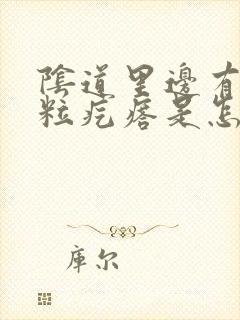 陰道里邊有
粒疙瘩是怎
庫尔